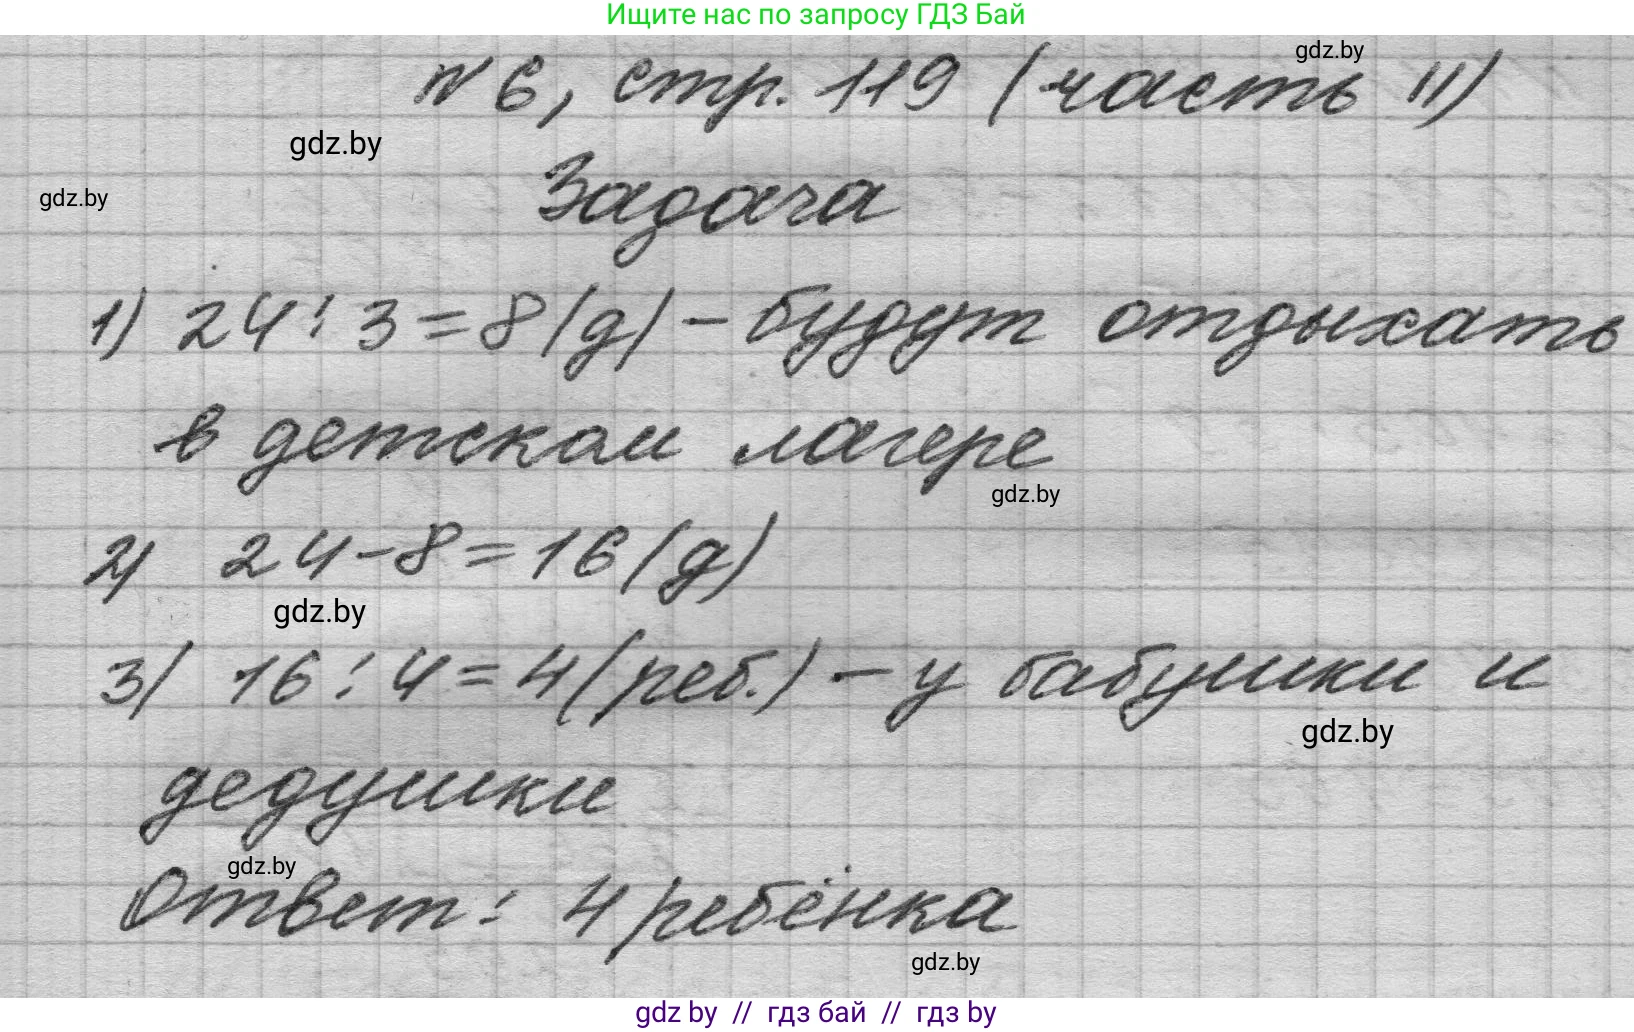 Ищите нас по запросу ГДЗ Бай
gdz.by
№ 6, стр. 119 (часть II)
gdz.by
Задача
gdz.by
1) 24 : 3 = 8 (д) - будут отдыхать
в детском лагере
gdz.by
2) 24 - 8 = 16 (д)
gdz.by
3) 16 : 4 = 4 (реб.) - у бабушки и
gdz.by
дедушки
gdz.by
Ответ: 4 ребёнка
gdz.by
gdz by // гдз бай // гдз by